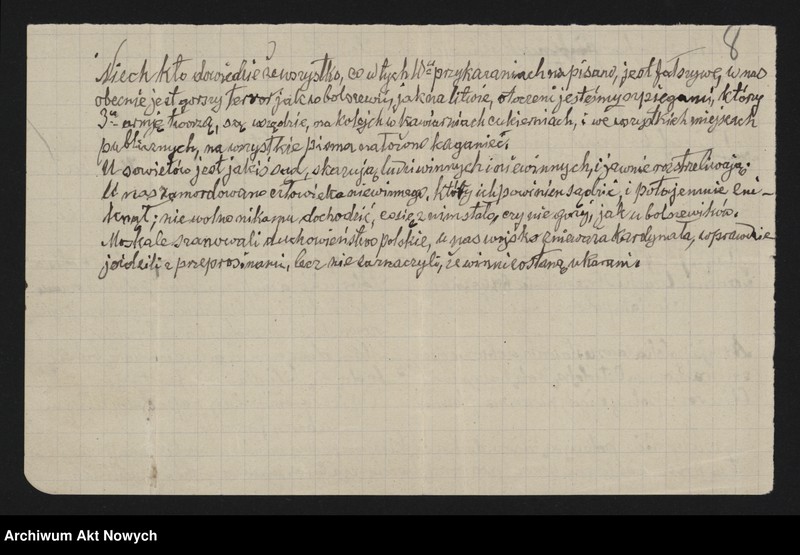 8
Niech kto dowiedzie że wszystko, co w tych 10ciu przykazaniach napisano, jest fałszywe, w nas
obecnie jest gorszy terror jak w bolszewji, jak na litwie, otoczeni jesteśmy szpiegami, który
3-a armję tworzą, są wszędzie, na kolejch w kawiarniach cukierniach, i we wszystkich miejscach
publicznych, na wszystkie pisma nałożono kaganiec.
U sowietów jest jakiś sąd, skazują ludzi winnych i niewinnych, i jawnie rozstrzeliwają.
U nas zamordowano człowieka niewinnego, który ich powinien sądzić, i potajemnie zni-
knął, nie wolno nikomu dochodzić, co się z nim stało, czy nie gorzej, jak u bolszewików.
Moskale szanowali duchowieństwo polskie, u nas wojsko znieważa kardynała, wprawdzie
jeździli z przeprosinami, lecz nie zaznaczyli, że winni zostaną ukarani.
Archiwum Akt Nowych